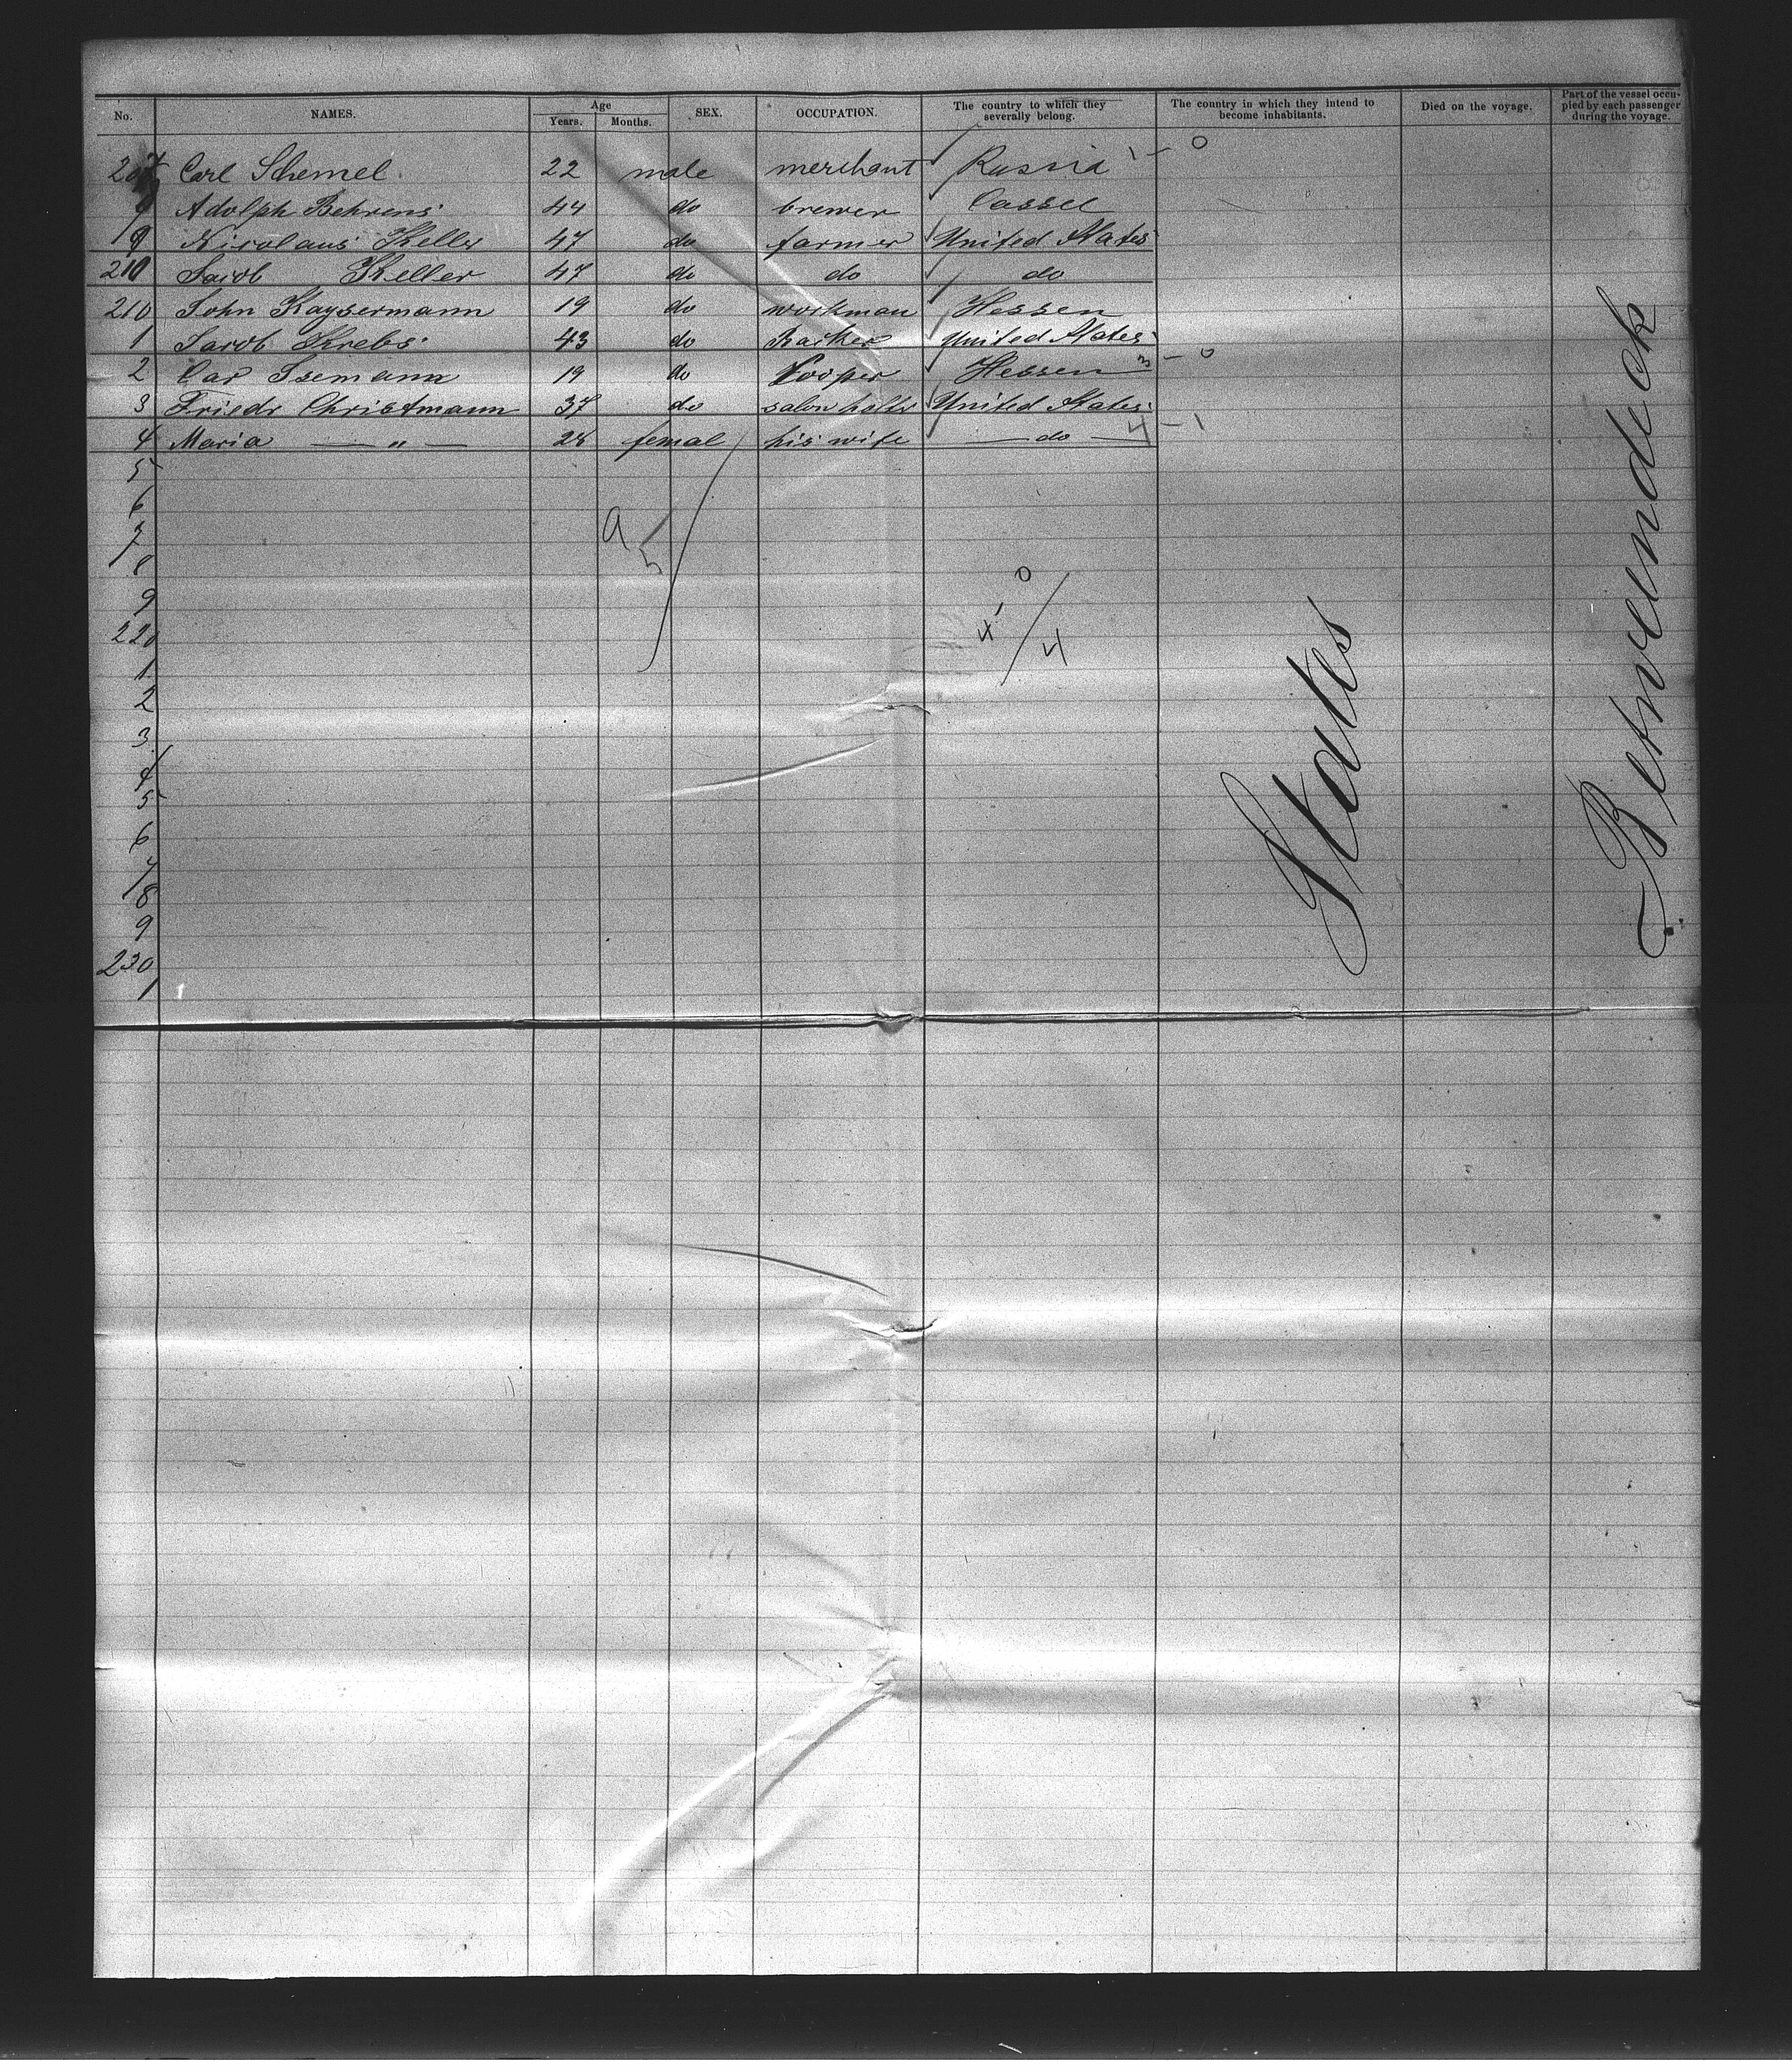 No. NAMES. Age Years. Months. SEX. OCCUPATION. The country to which they severally belong. The country in which they intend to become inhabitants. Died on the voyage. Part of the vessel occupied by each passenger during the voyage.
207 Carl Schemel 22 male merchant Russia 1 - 0
Adolph Behrens 44 do brewer Cassel
9 Nicolaus Keller 47 do farmer United States
210 Jacob Keller 47 do do do
210 John Kaysermann 19 do workman Hessen
1 Jacob Krebs 43 do United States
2 Car Isemann 19 do Cooper Hessen 3 - 0
3 Friedr Christmann 37 do salon United States
4 Maria — " — 28 femal his wife — do — 4 - 1
5
6
7
8
9
220
1
2
3
4
5
6
7
8
9
230
1
9 / 5
0
4 / 4
States
Betweendeck